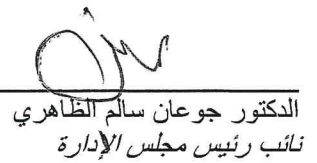 الدكتور جوعان سالم الظاهري
نائب رئيس مجلس الإدارة